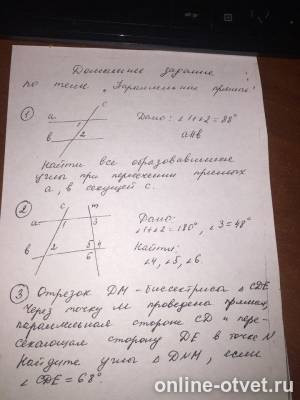 Домашнее задание
по теме "Параллельные прямые"
① Дано: ∠1+∠2=88°
a∥b
a
b
c
1
2
Найти все образовавшиеся
углы при пересечении прямых
a, b секущей c.
② Дано:
∠1+∠2=180°, ∠3=48°
Найти:
∠4, ∠5, ∠6
c
m
a
1
3
b
2
5
4
6
③ Отрезок DM - биссектриса ∠CDE
Через точку M проведена прямая,
параллельная стороне CD и пере-
секающая сторону DE в точке N
Найдите углы △DNM, если
∠CDE=68°.
online-otvet.ru